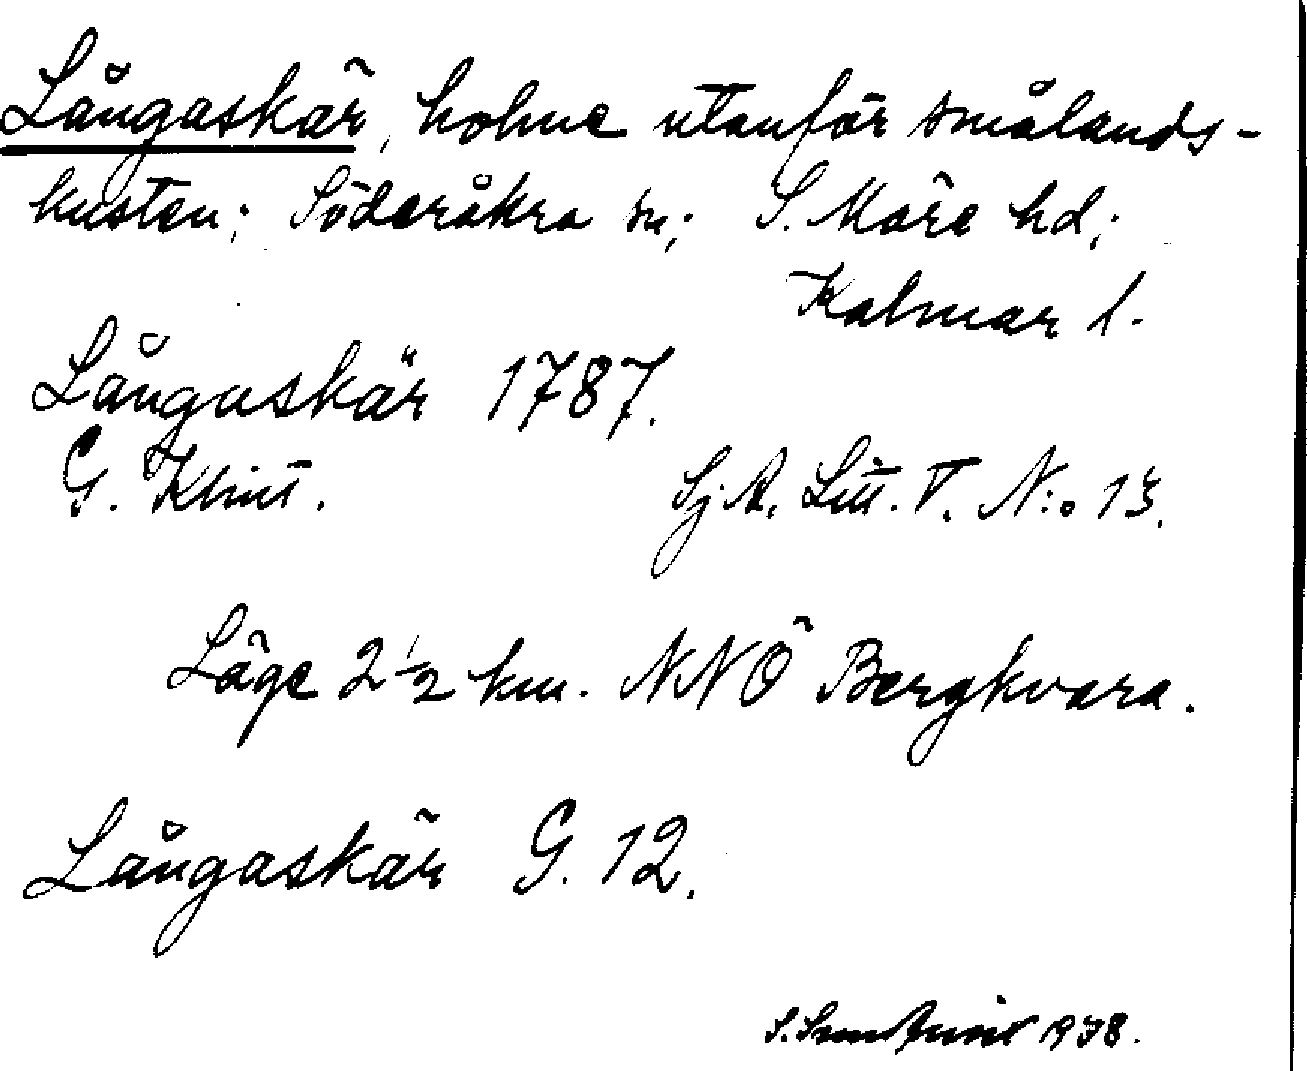 Långaskär, holme utanför smålands-
kusten; Söderåkra sn; S. Möre hd;
Kalmar l.
Långaskär 1787.
G. Klint. Sj. A. Litt. V. N:o 13.
Läge 2 1/2 km. NNÖ Bergkvara.
Långaskär G. 12.
S. 1938.